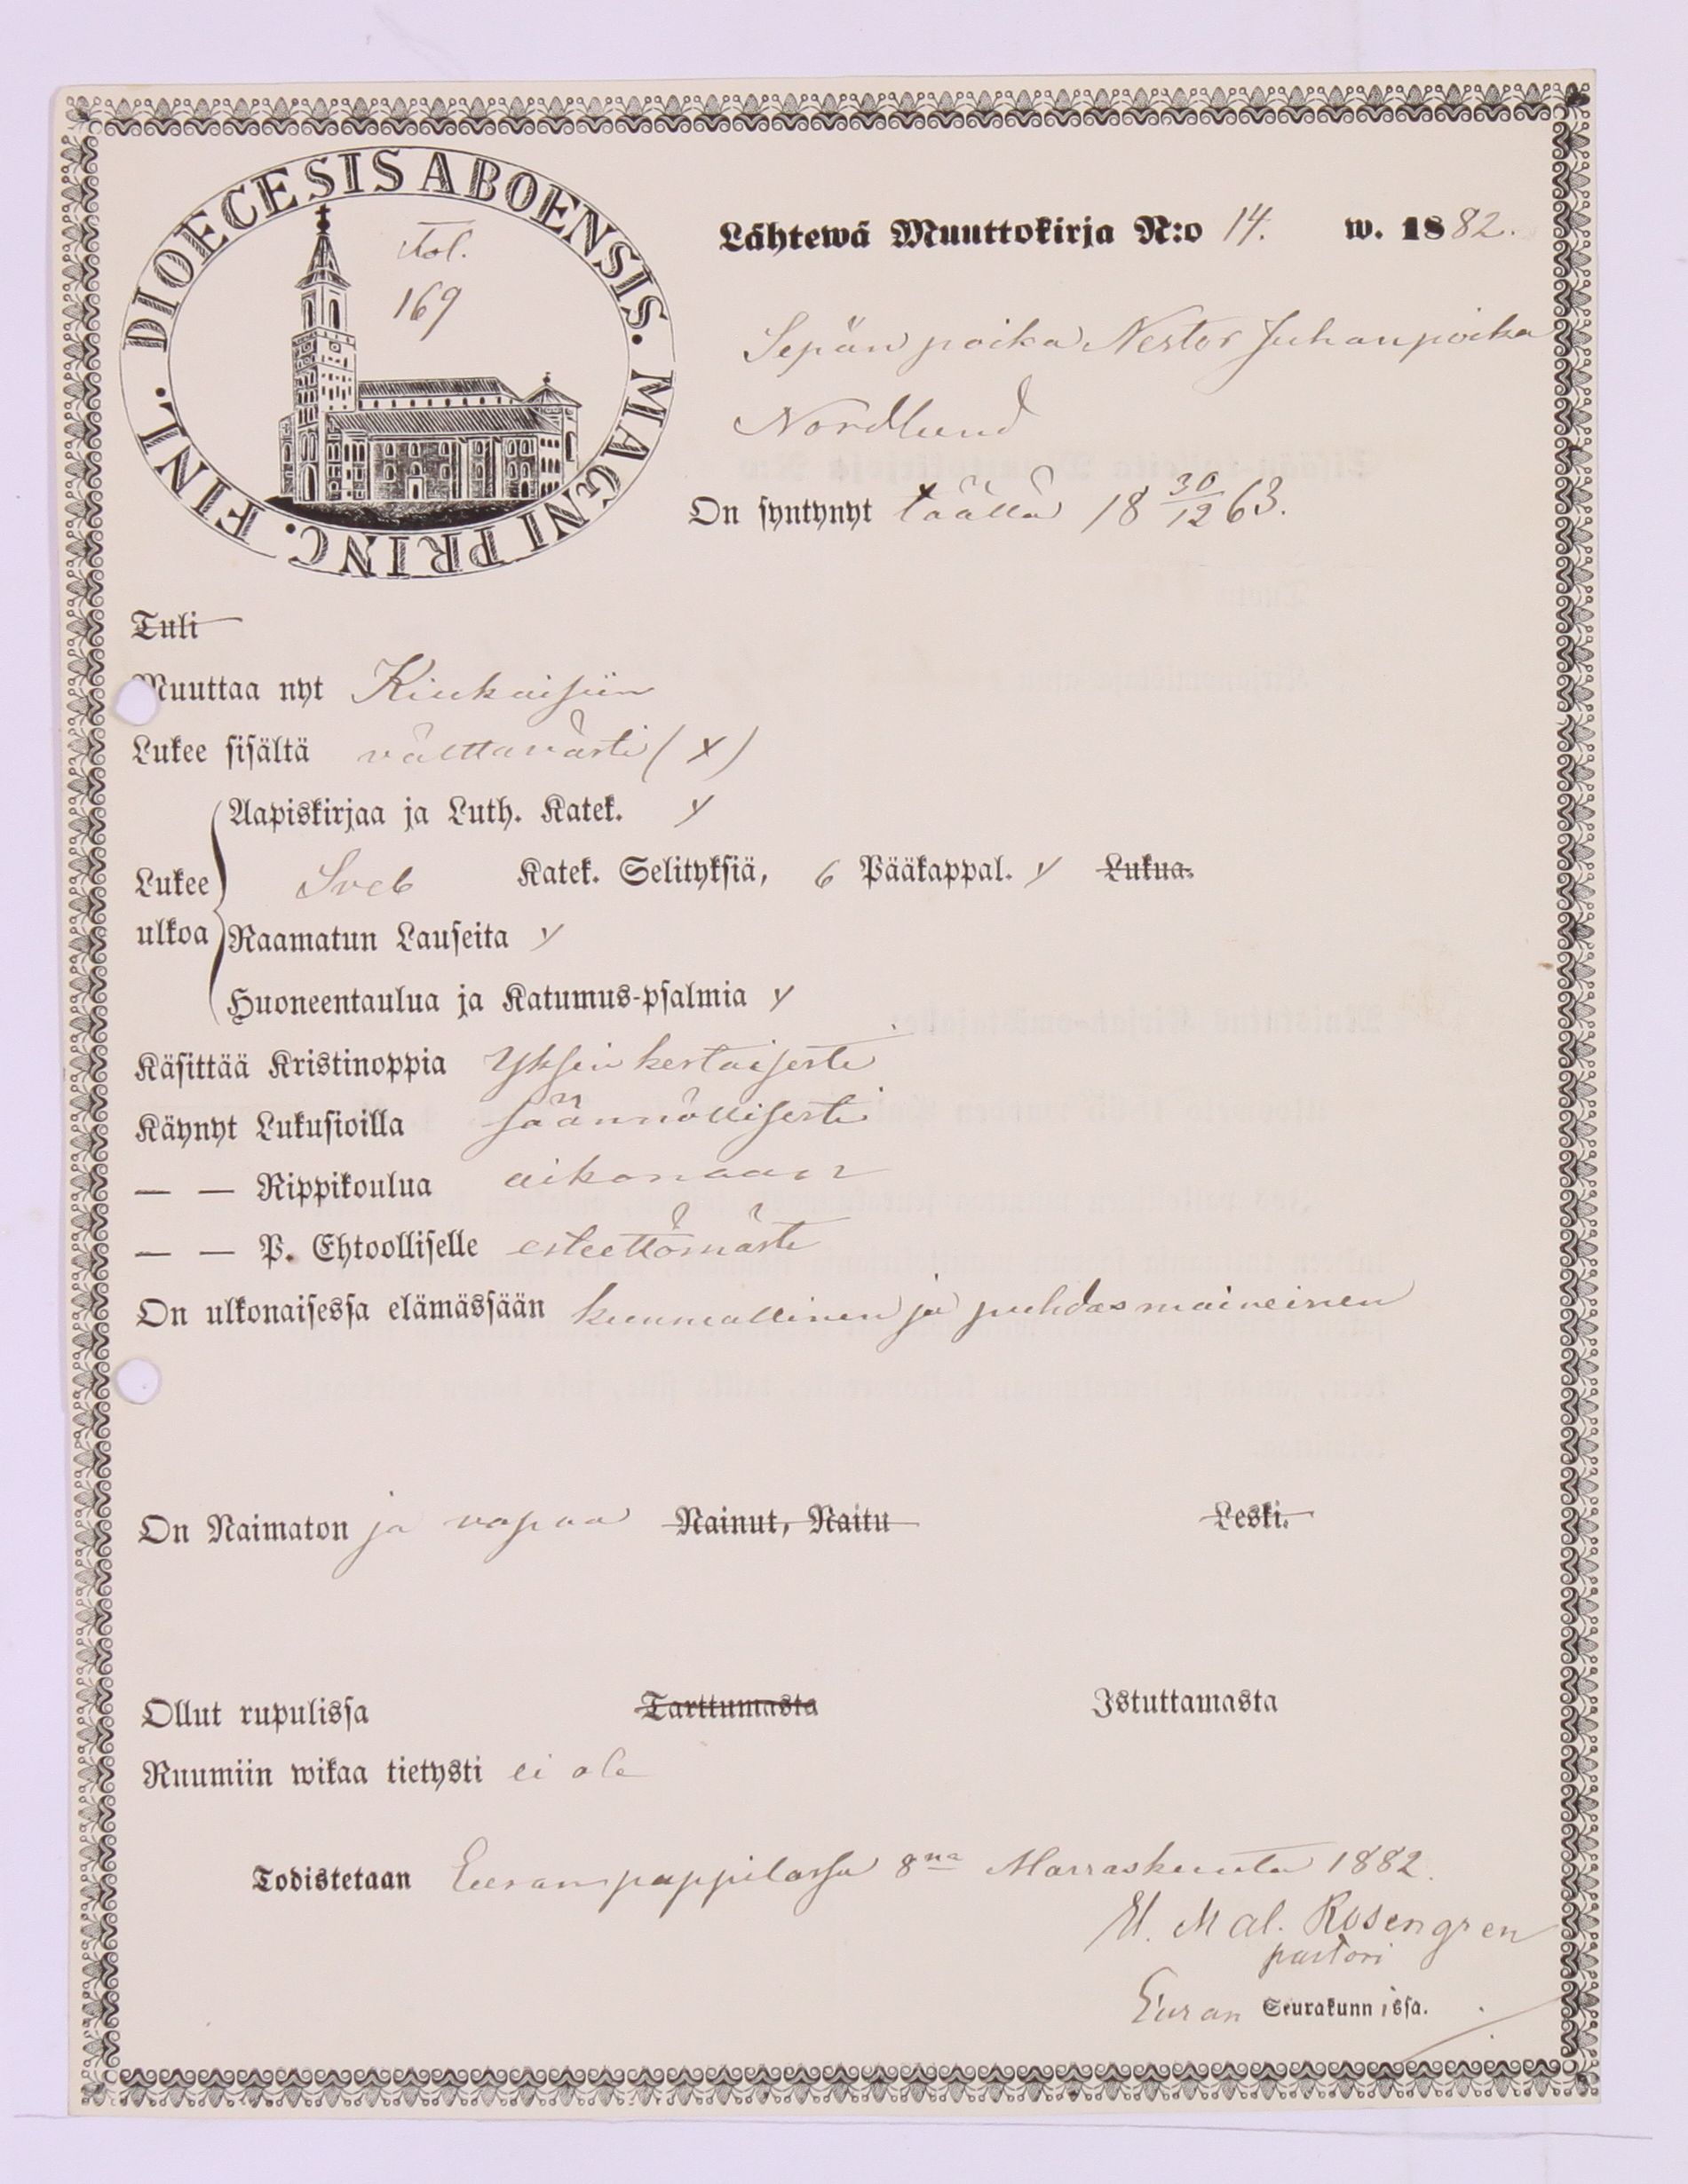 DIOECESIS ABOENSIS. MAGNI PRINC. FINL.
Fol.
169
Lähtewä Muuttokirja N:o 14. w. 1882.
Sepän poika Nestor Juhanpoika
Nordlund
On syntynyt täällä 18 30/12 63.
Tuli
Muuttaa nyt Kiukaisiin
Lukee sisältä välttävästi (x)
Aapiskirjaa ja Luth. Katek. y
Lukee ulkoa
Sveb Katek. Selityksiä, 6 Pääkappal. y Lukua.
Raamatun Lauseita y
Huoneentaulua ja Katumus-psalmia y
Käsittää Kristinoppia Yksinkertaisesti
Käynyt Lukusioilla säännöllisesti
— — Rippikoulua aikonaan
— — P. Ehtoolliselle esteettömästi
On ulkonaisessa elämässään kunnallinen ja puhdasmaineinen
On Naimaton ja vapaa Nainut, Naitu Leski.
Ollut rupulissa Tarttumasta Istuttamasta
Ruumiin wikaa tietysti ei ole
Todistetaan Euran pappilassa 8na Marraskuuta 1882.
Mal. Rosengren
pastori
Euran Seurakunnissa.